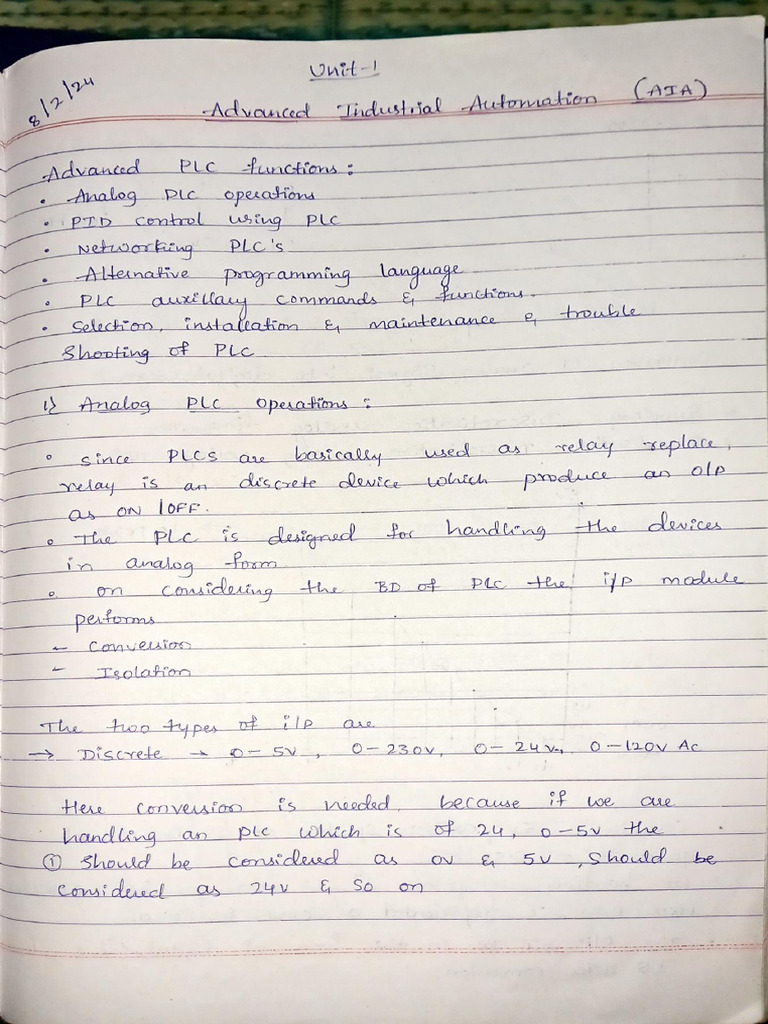 Unit-1
8/2/24
Advanced Industrial Automation (AIA)
Advanced PLC functions:
• Analog PLC operations
• PID control using PLC
• Networking PLC's
• Alternative programming language
• PLC auxillary commands & functions.
• Selection, installation & maintenance & trouble
shooting of PLC
1) Analog PLC operations:
• since PLCS are basically used as relay replace,
relay is an discrete device which produce an o/p
as ON /OFF.
• The PLC is designed for handling the devices
in analog form
• on considering the BD of PLC the i/p module
performs
- Conversion
- Isolation
The two types of i/p are
→ Discrete → 0-5V, 0-230V, 0-24V, 0-120V AC
Here conversion is needed, because if we are
handling an PLC which is of 24, 0-5V the
① should be considered as 0V & 5V, should be
considered as 24V & so on